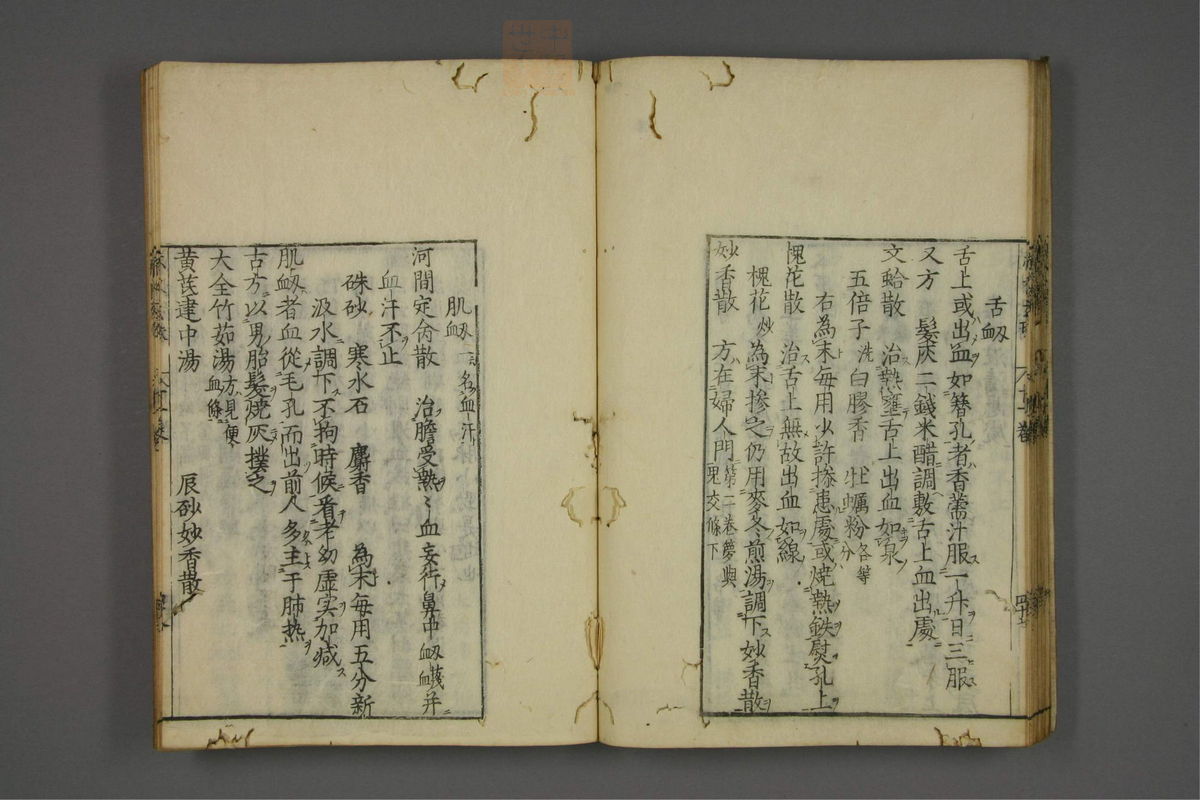 舌衄
舌上或出血如簪孔者香薷汁服一升日三服
又方 髮灰二錢米醋調敷舌上血出處
文蛤散 治熱壅舌上出血如泉
五倍子洗 白膠香 牡蠣粉各等分
右為末每用少許摻患處或燒熱鉄熨孔上
槐花散 治舌上無故出血如線
槐花炒為末摻之仍用麥冬煎湯調下妙香散
妙香散 方在婦人門第二卷夢與鬼交條下
肌衄一名血汗
河間定命散 治膽受熱〻血妄行鼻中衄衊并
血汗不止
硃砂 寒水石 麝香 為末每用五分新
汲水調下不拘時候看老幼虛实加减
肌衄者血從毛孔而出前人多主于肺热
古方以男胎髮燒灰撲之
大全竹茹湯方見便血條
黄芪建中湯 辰砂妙香散